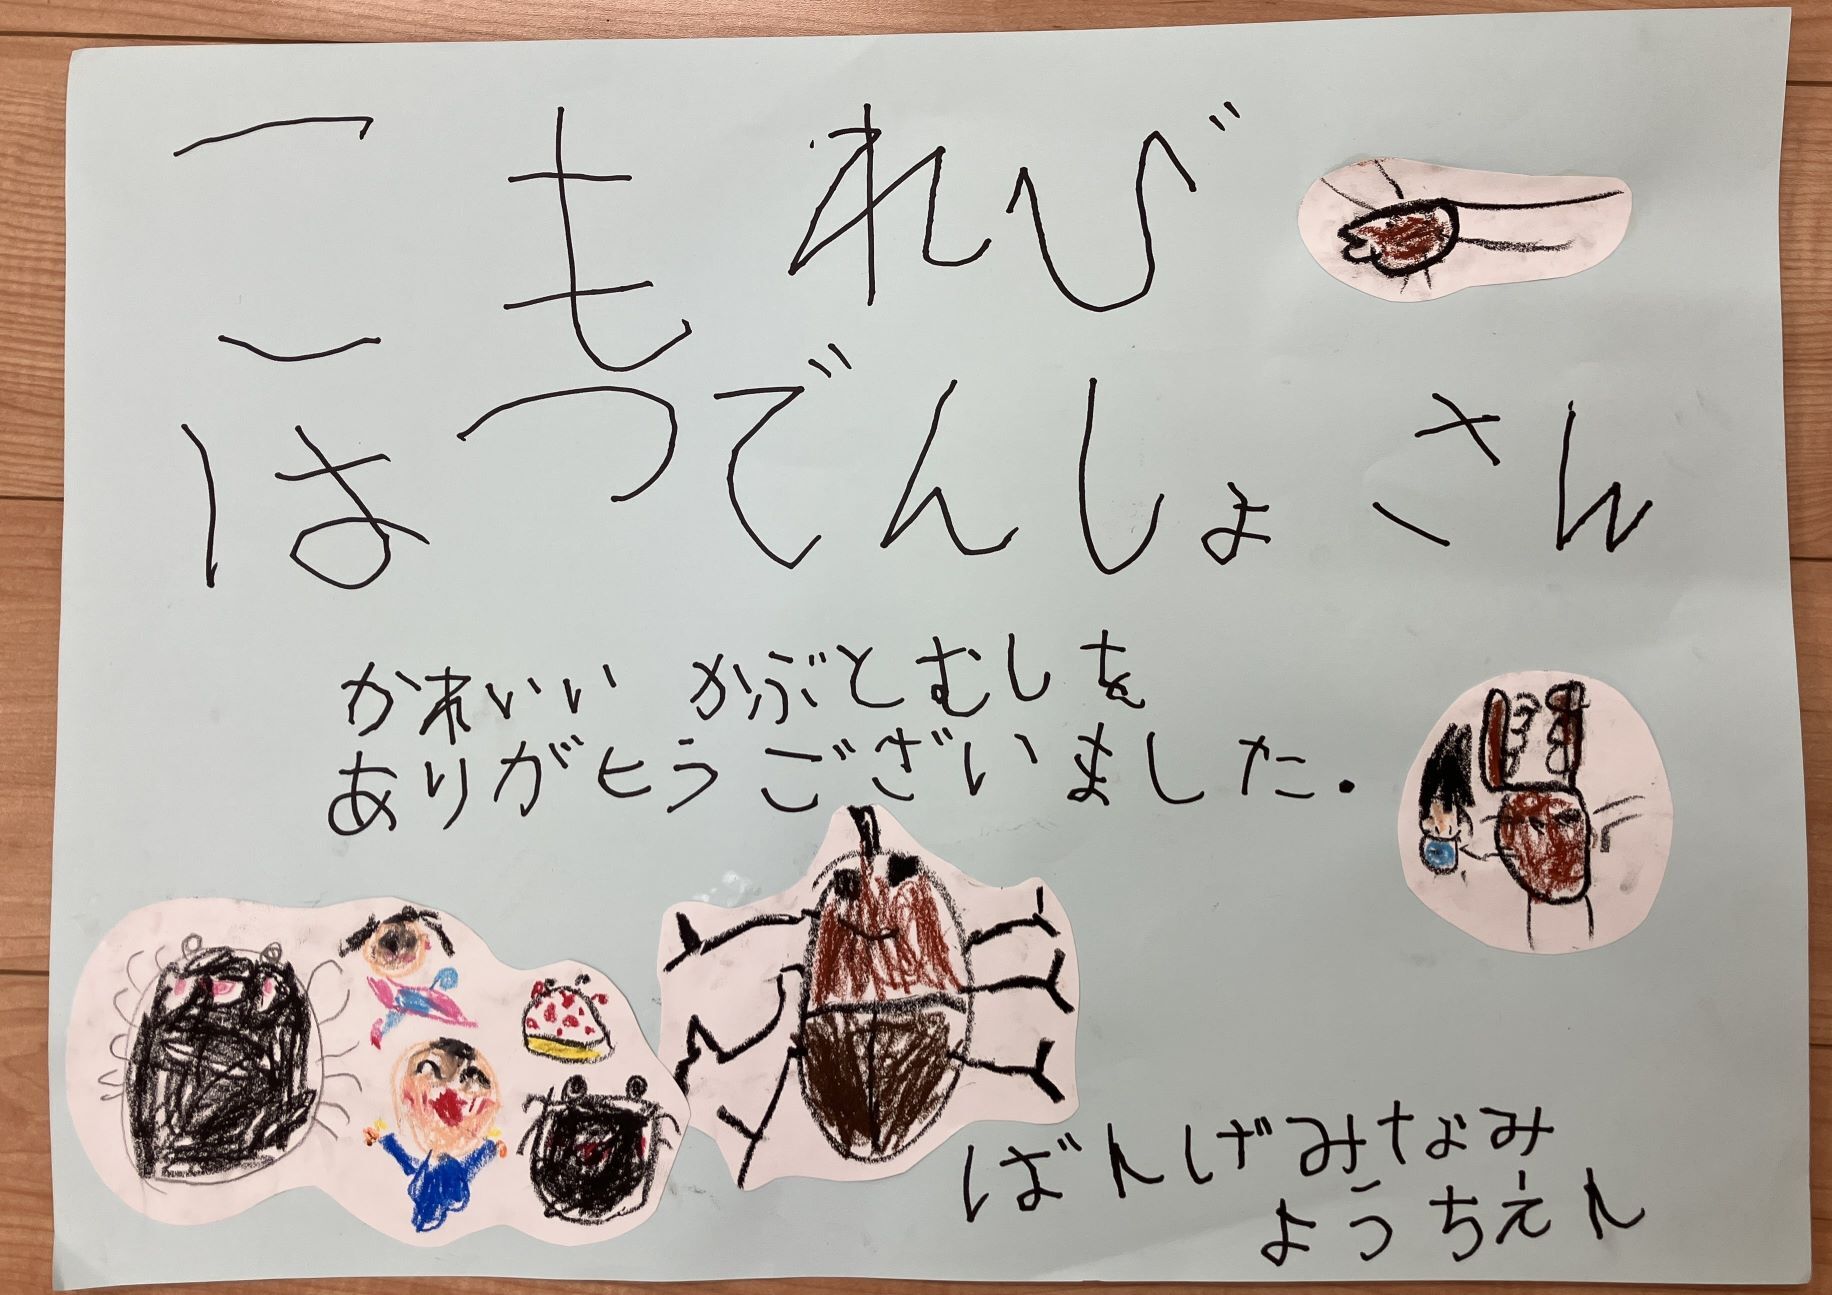 こもれび
はつでんしょさん
かわいい かぶとむしを
ありがとうございました.
ばんげみなみ
ようちえん